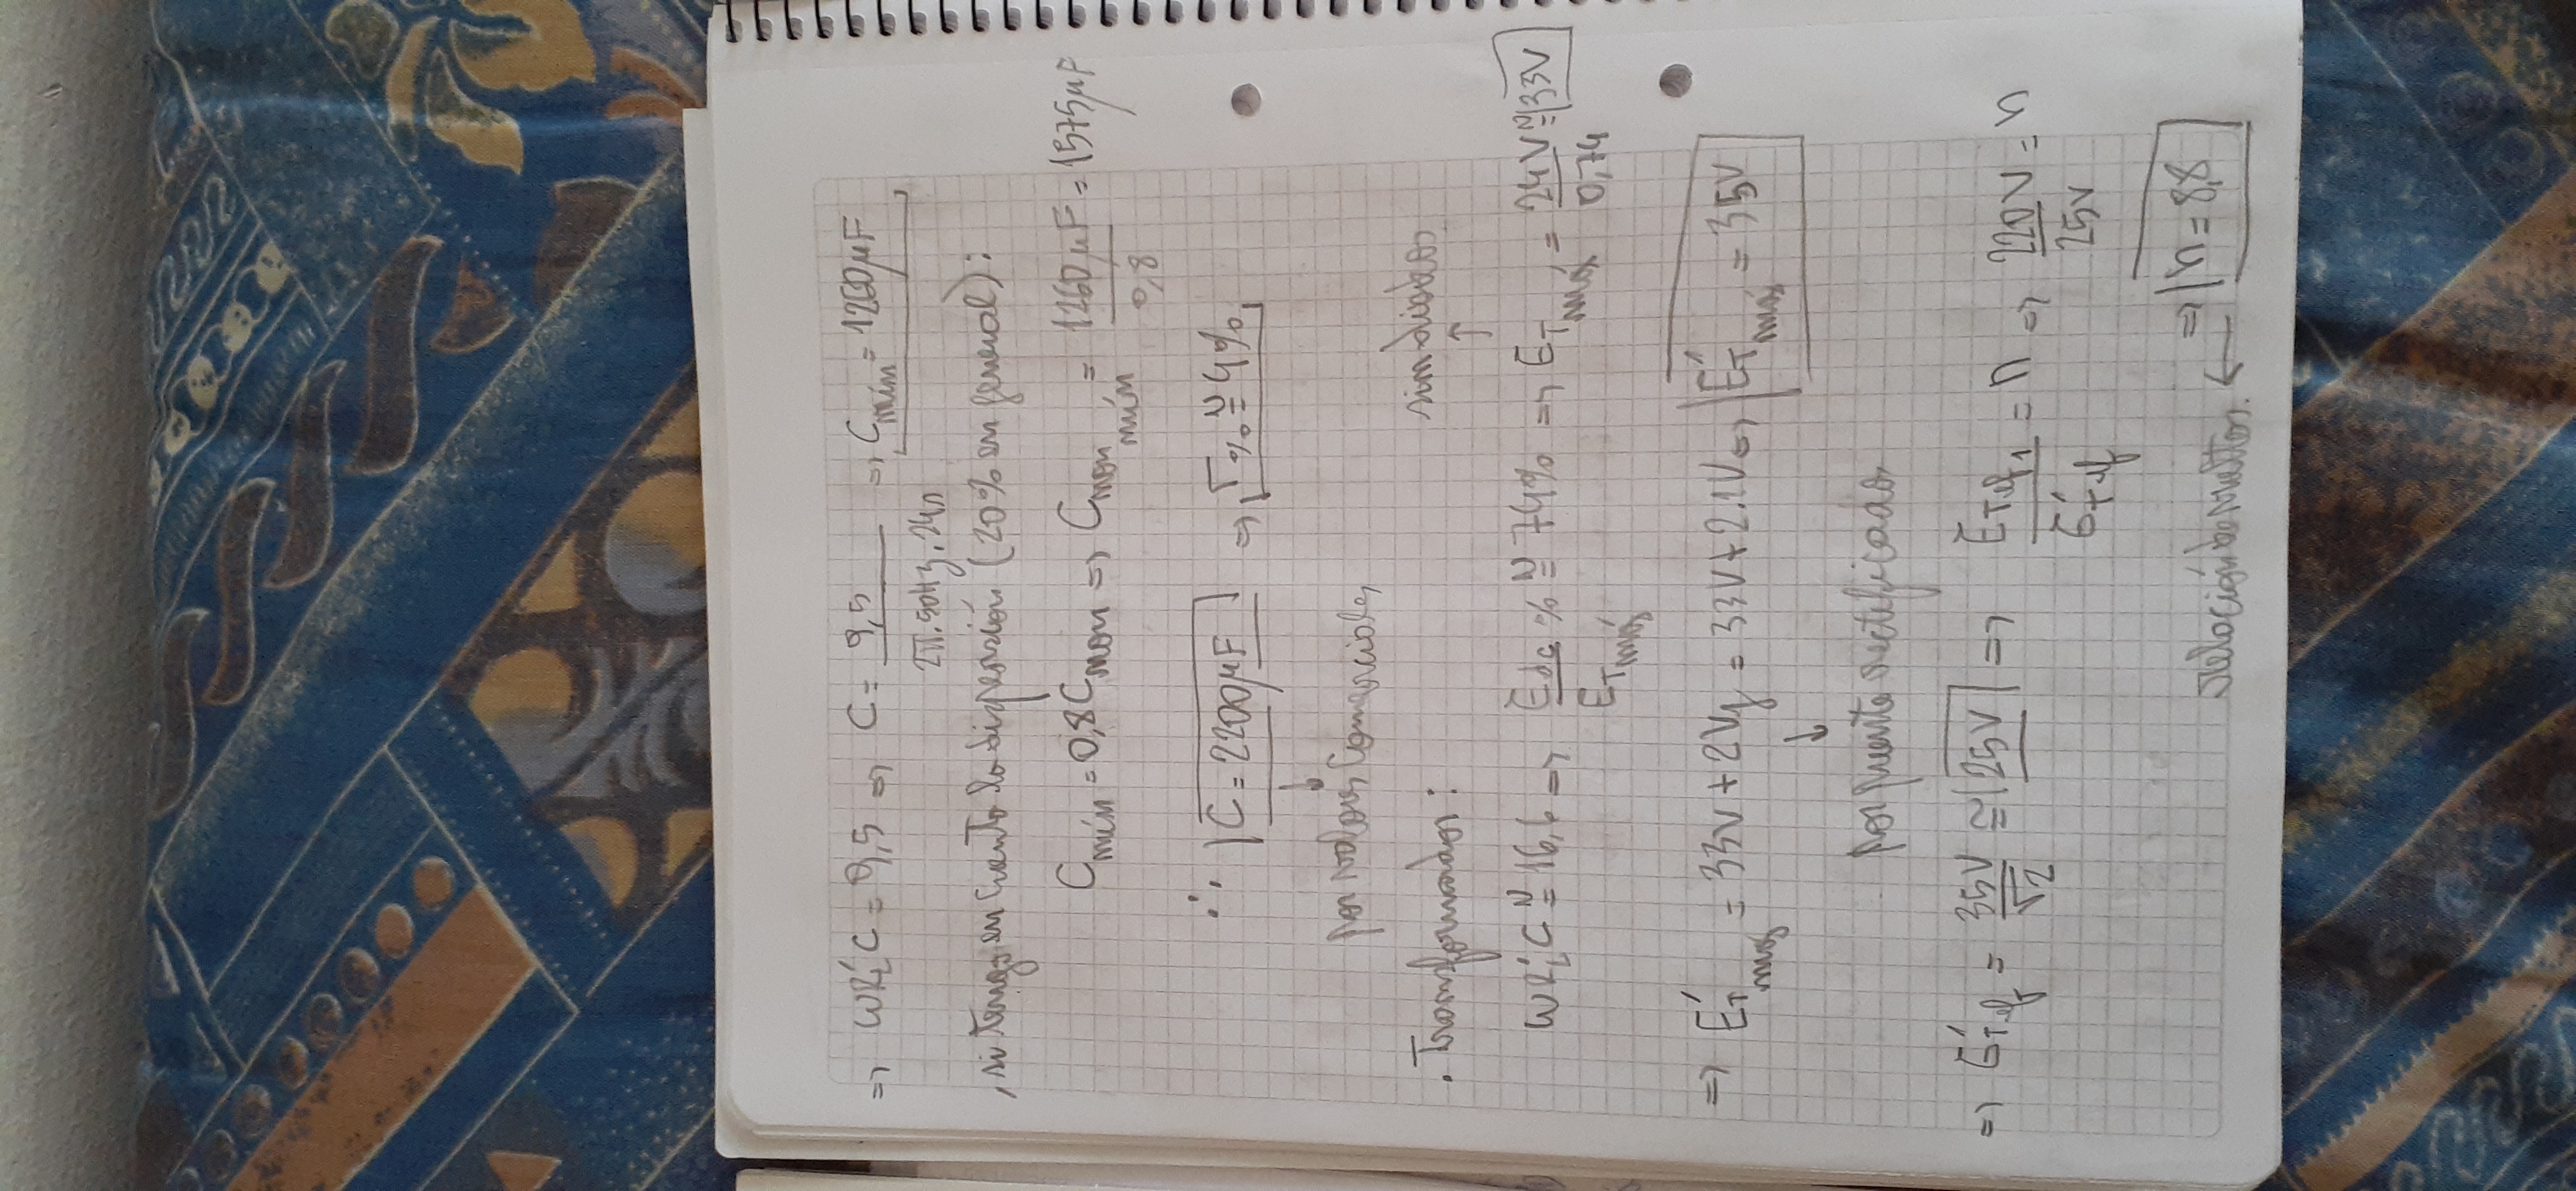 ⇒ ωRL'C = 9,5 ⇒ C = 9,5 / 2π.50Hz.24Ω ⇒ Cmín = 1260μF
, si tengo en cuenta la dispersión (20% en general):
Cmín = 0,8 Cnom ⇒ Cnom mín = 1260μF / 0,8 = 1575μF
∴ C = 2200μF ⇒ r% ≅ 4%
↓
por valores comerciales
sin diodos
. Transformador: ↑
ωRL'C ≅ 16,6 ⇒ Edc / ETmáx % ≅ 74% ⇒ ETmáx = 24V / 0,74 ≅ 33V
⇒ ET'máx = 33V + 2Vγ = 33V + 2.1V ⇒ ET'máx = 35V
↓
por puente rectificador
⇒ ET'ef = 35V / √2 ≅ 25V ⇒ ETef1 / ET'ef = n ⇒ 220V / 25V = n
⇒ n = 8,8
relación de vueltas. ←